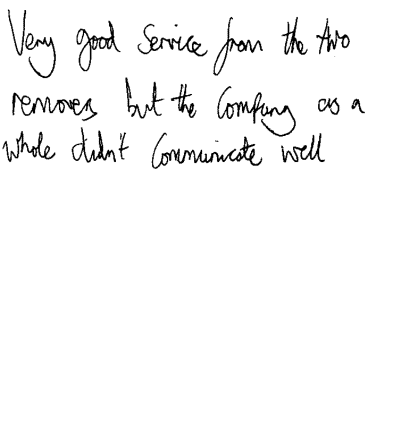 Very good Service from the two
removers but the Company as a
whole didn't Communicate well